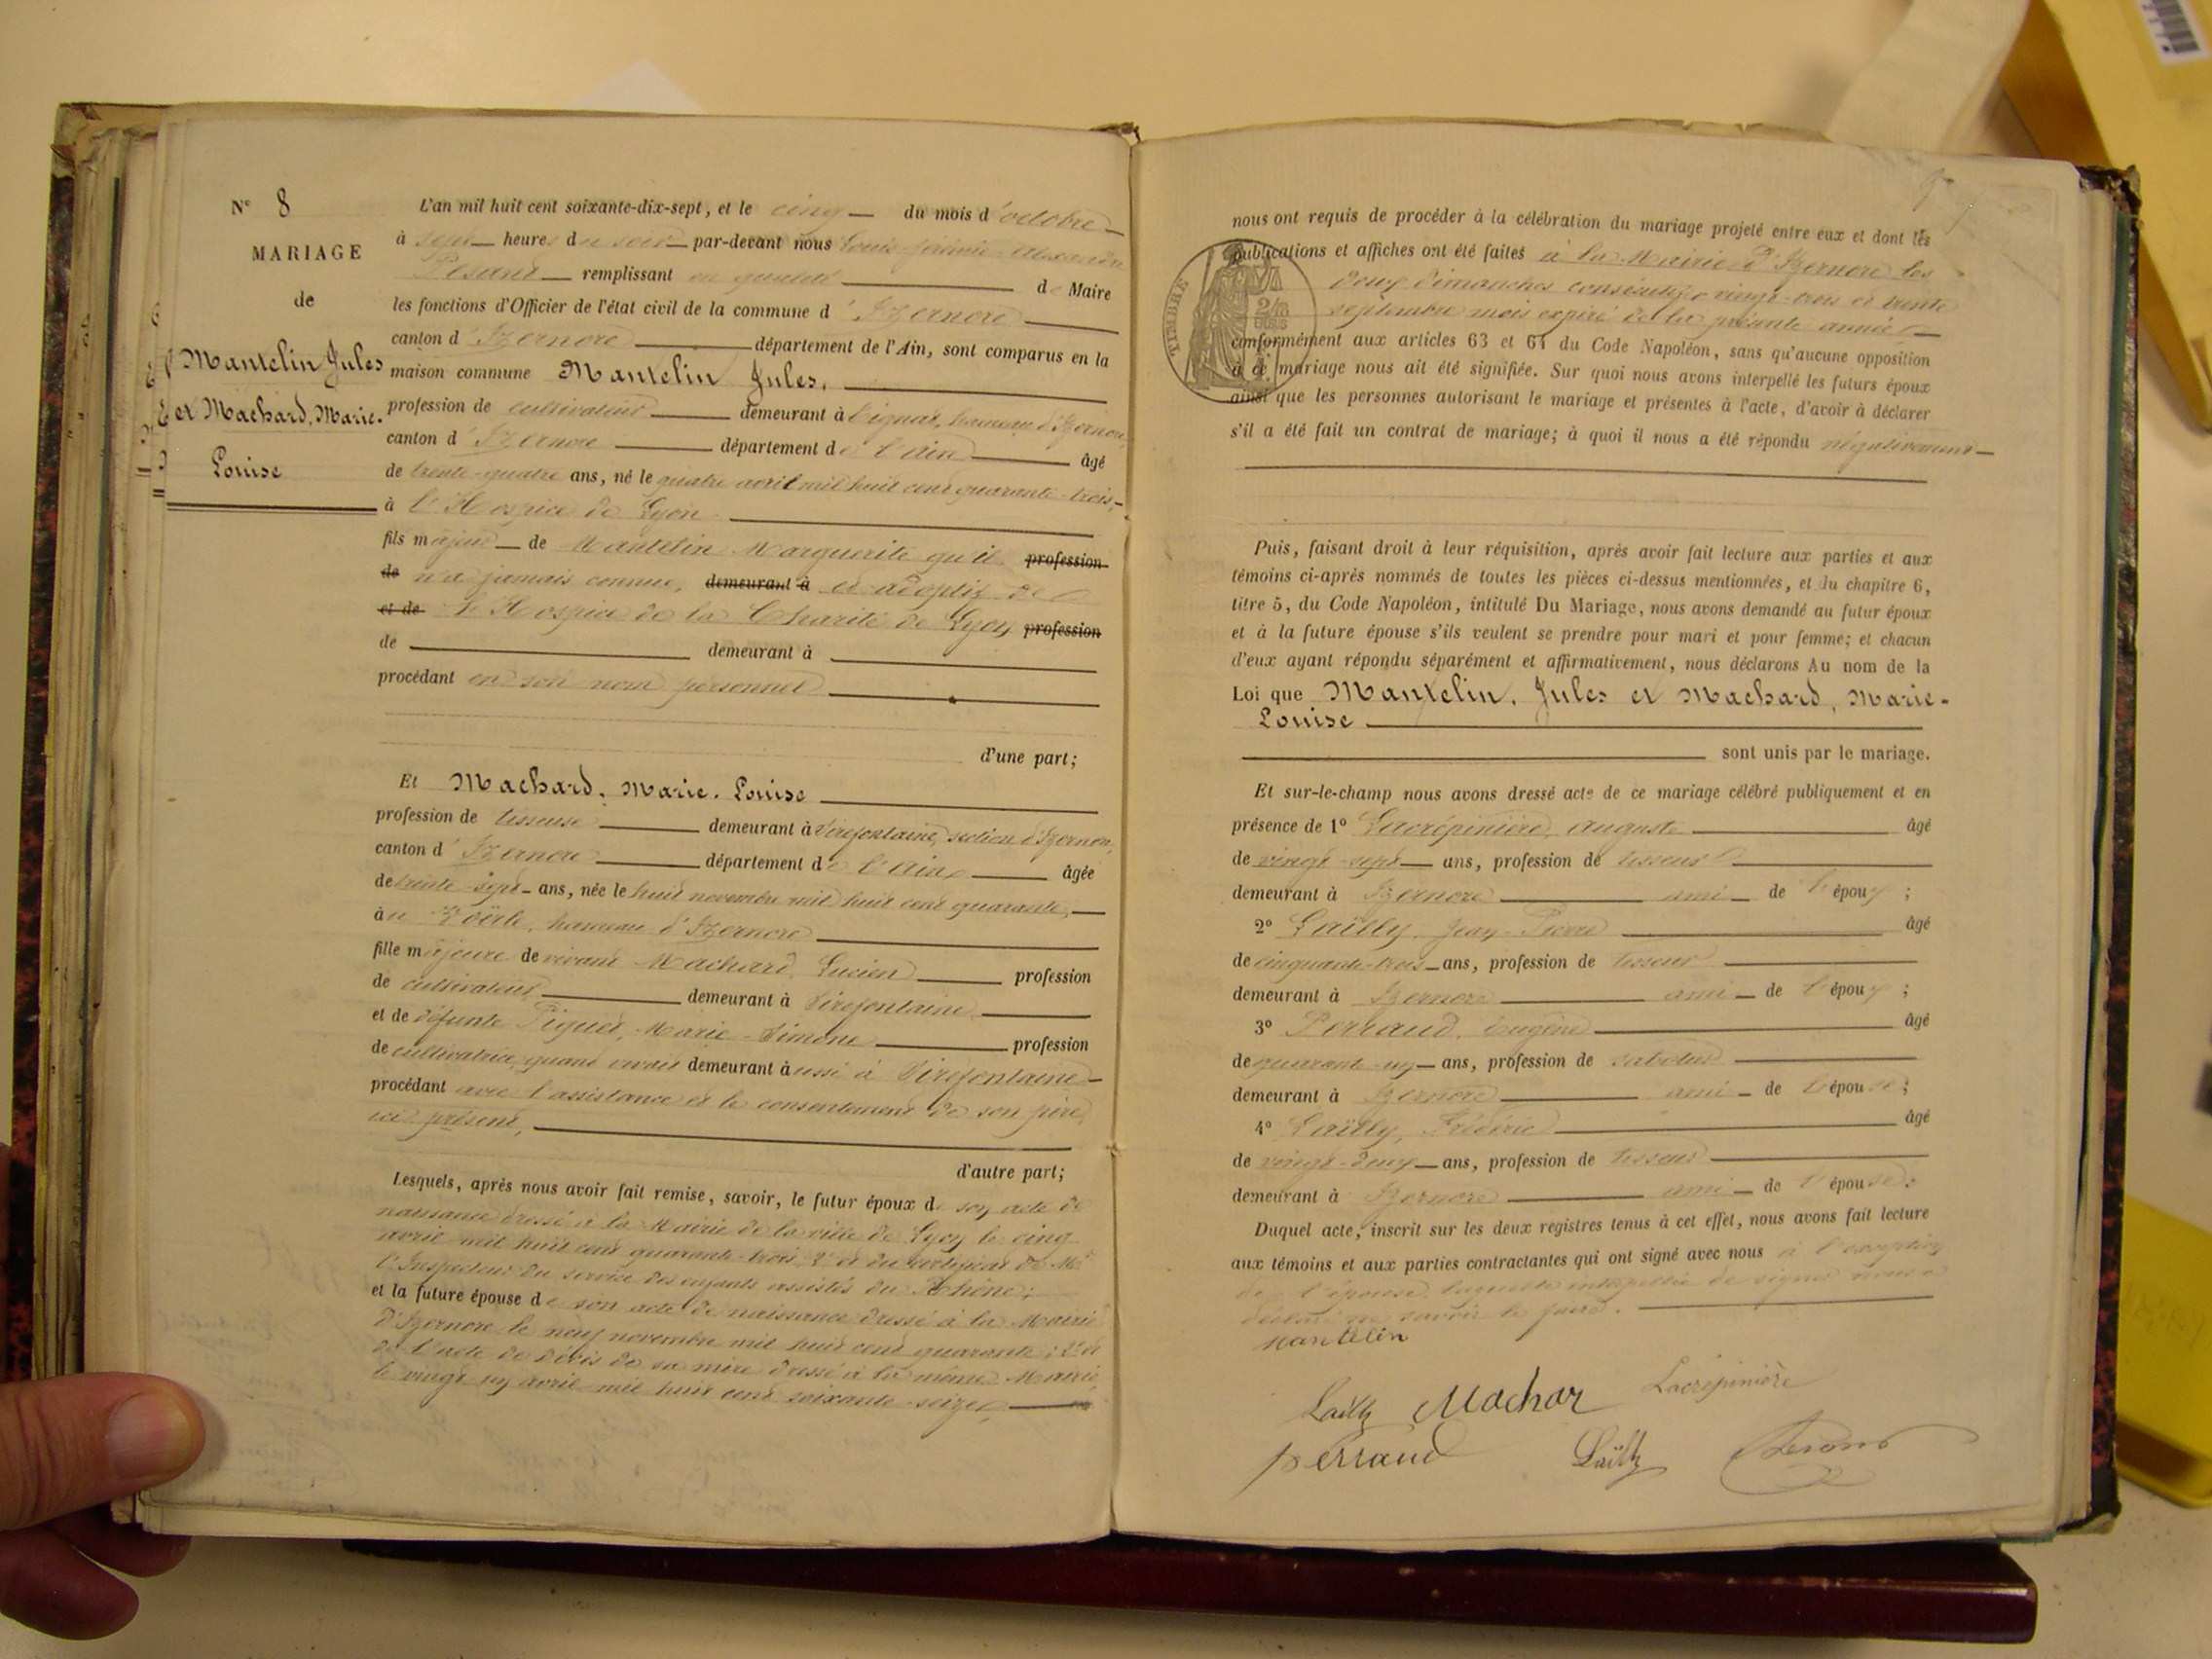 N° 8
MARIAGE
de
Mantelin Jules
et Machard, Marie-
Louise
L'an mil huit cent soixante-dix-sept, et le cinq du mois d'octobre
à sept heures du soir par-devant nous Louis Jérémie Alexandre
remplissant en qualité de Maire
les fonctions d'Officier de l'état civil de la commune d'Izernore
canton d'Izernore département de l'Ain, sont comparus en la
maison commune Mantelin Jules,
profession de cultivateur demeurant à Bignat, hameau d'Izernore,
canton d'Izernore département de l'Ain âgé
de trente-quatre ans, né le quatre avril mil huit cent quarante-trois,
à l'Hospice de Lyon
fils majeur de Mantelin Marguerite qu'il profession
de n'a jamais connue, demeurant à et adoptif de
et de l'Hospice de la Charité de Lyon profession
de demeurant à
procédant en son nom personnel
d'une part;
Et Machard, Marie-Louise
profession de tisseuse demeurant à Virefontaine, section d'Izernore,
canton d'Izernore département de l'Ain âgée
de trente-sept ans, née le huit novembre mil huit cent quarante,
à hameau d'Izernore
fille majeure de vivant Machard, Lucien profession
de cultivateur demeurant à Virefontaine
et de défunte Piquet, Marie-Simone profession
de cultivatrice, quand vivait demeurant aussi à Virefontaine
procédant avec l'assistance et le consentement de son père
ici présent,
d'autre part;
Lesquels, après nous avoir fait remise, savoir, le futur époux de son acte de
naissance dressé à la Mairie de la ville de Lyon le cinq
avril mil huit cent quarante-trois, 2° et du certificat de Mr
l'Inspecteur du service des enfants assistés du Rhône;
et la future épouse de son acte de naissance dressé à la Mairie
d'Izernore le neuf novembre mil huit cent quarante; 2° et
de l'acte de décès de sa mère dressé à la même Mairie,
le vingt un avril mil huit cent soixante-seize,
nous ont requis de procéder à la célébration du mariage projeté entre eux et dont les
publications et affiches ont été faites à la Mairie d'Izernore les
deux dimanches consécutifs vingt-trois et trente
septembre mois expiré de la présente année
TIMBRE
conformément aux articles 63 et 64 du Code Napoléon, sans qu'aucune opposition
à ce mariage nous ait été signifiée. Sur quoi nous avons interpellé les futurs époux
ainsi que les personnes autorisant le mariage et présentes à l'acte, d'avoir à déclarer
s'il a été fait un contrat de mariage; à quoi il nous a été répondu négativement
Puis, faisant droit à leur réquisition, après avoir fait lecture aux parties et aux
témoins ci-après nommés de toutes les pièces ci-dessus mentionnées, et du chapitre 6,
titre 5, du Code Napoléon, intitulé Du Mariage, nous avons demandé au futur époux
et à la future épouse s'ils veulent se prendre pour mari et pour femme; et chacun
d'eux ayant répondu séparément et affirmativement, nous déclarons Au nom de la
Loi que Mantelin, Jules et Machard, Marie-
Louise
sont unis par le mariage.
Et sur-le-champ nous avons dressé acte de ce mariage célébré publiquement et en
présence de 1° Lacrépinière, Auguste âgé
de vingt-sept ans, profession de tisseur
demeurant à Izernore ami de l'époux;
2° Laïlly, Jean-Pierre âgé
de cinquante-trois ans, profession de tisseur
demeurant à Izernore ami de l'époux;
3° Perraud, Eugène âgé
de quarante-un ans, profession de sabotier
demeurant à Izernore ami de l'épouse;
4° Laïlly, Frédéric âgé
de vingt-deux ans, profession de tisseur
demeurant à Izernore ami de l'épouse.
Duquel acte, inscrit sur les deux registres tenus à cet effet, nous avons fait lecture
aux témoins et aux parties contractantes qui ont signé avec nous à l'exception
de l'épouse, laquelle interpellée de signer nous a
déclaré ne savoir le faire.
Mantelin
Lailly Machar Lacrépinière
perraud Laïlly